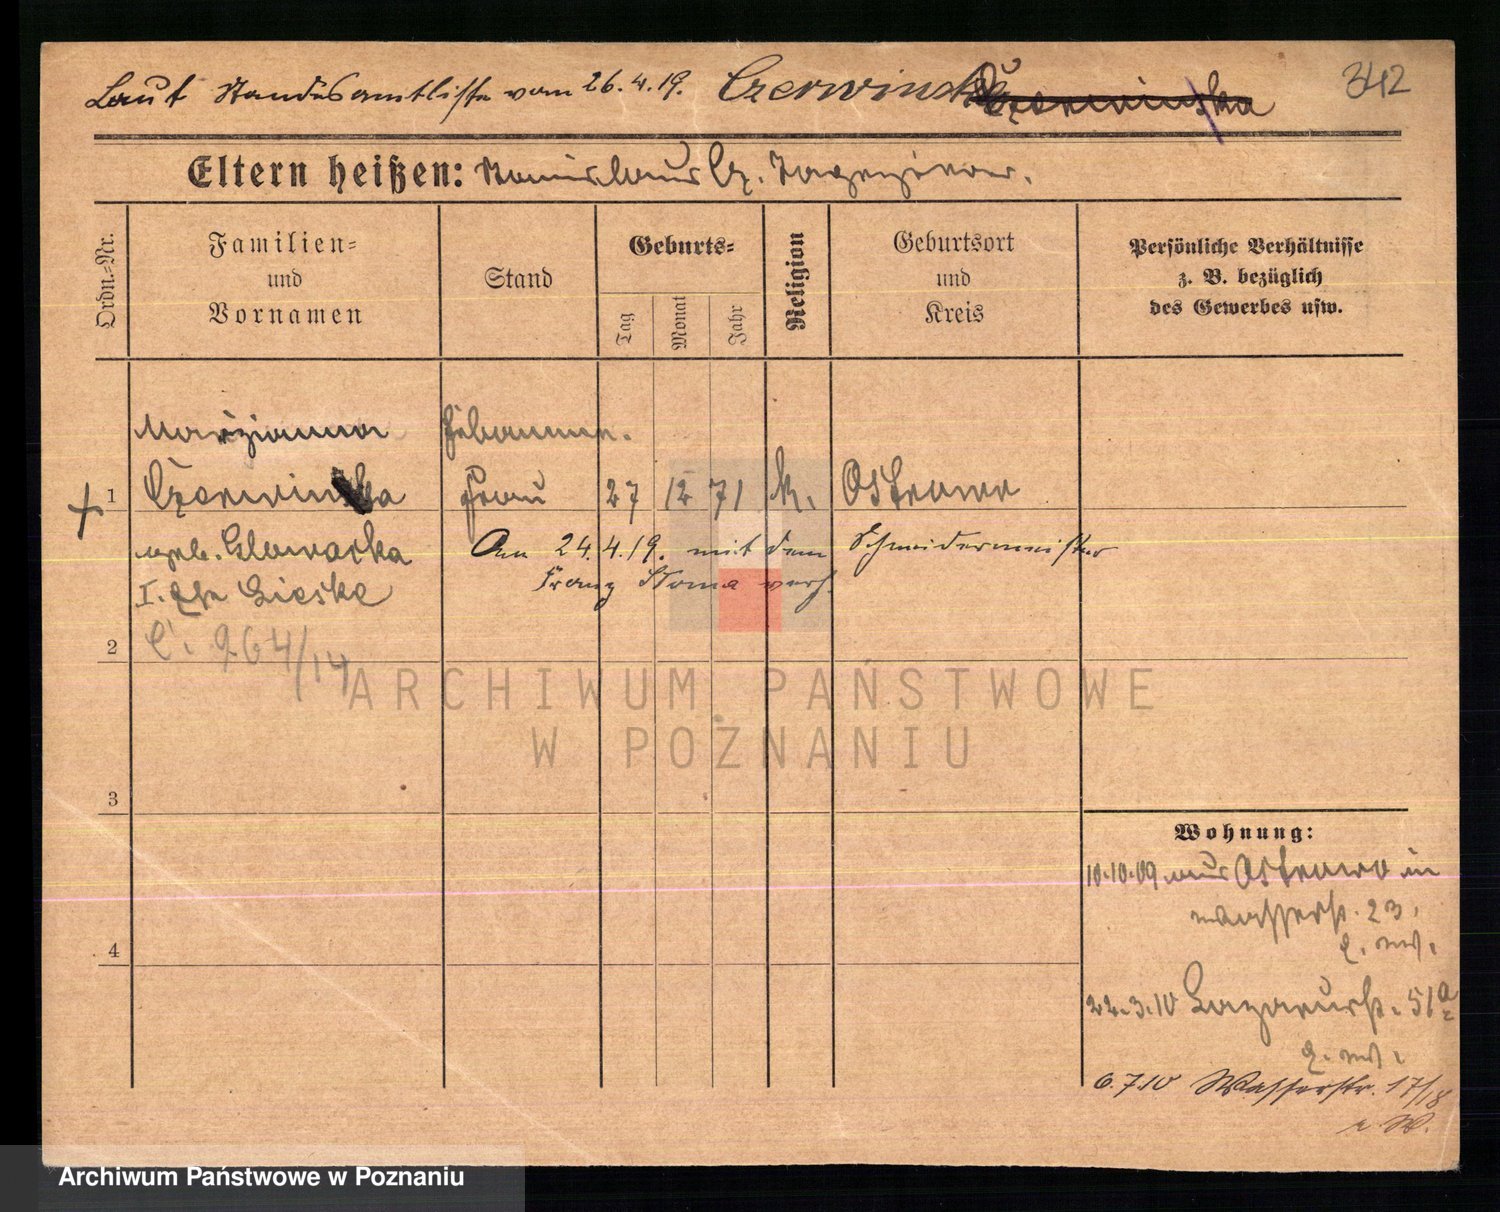 Laut Standesamtliste vom 26.4.19. Czerwinska Czerwinska 342
Eltern heißen: Stanislaus Cz.
Ordn.-Nr.
Familien-
und
Vornamen
Stand
Geburts-
Tag
Monat
Jahr
Religion
Geburtsort
und
Kreis
Persönliche Verhältnisse
z. B. bezüglich
des Gewerbes usw.
Marzianna Hebamme.
1 Czerwinska Frau 27 12 71 k. Ostrowo
geb. Glowacka Am 24.4.19. mit dem Schneidermeister
I. Ehe Franz Stoma verh.
2 C. 964/14
3
4
Wohnung:
10.10.09 aus Ostrowo in
Wasserstr. 23.
e. W.
22.3.10 Lazarusstr. 51a
e. W.
6.7.10 Wasserstr. 17/18
e. W.
ARCHIWUM PAŃSTWOWE
W POZNANIU
Archiwum Państwowe w Poznaniu